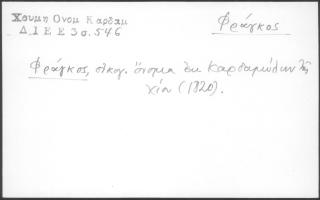 Χουμη Ονομ Καρδαμ
Δ Ι Ε Ε 30.546
Φράγκος
Φράγκος, οἰκογ. ὄνομα ἐκ Καρδαμύλων τῆς
Χίου (1820).